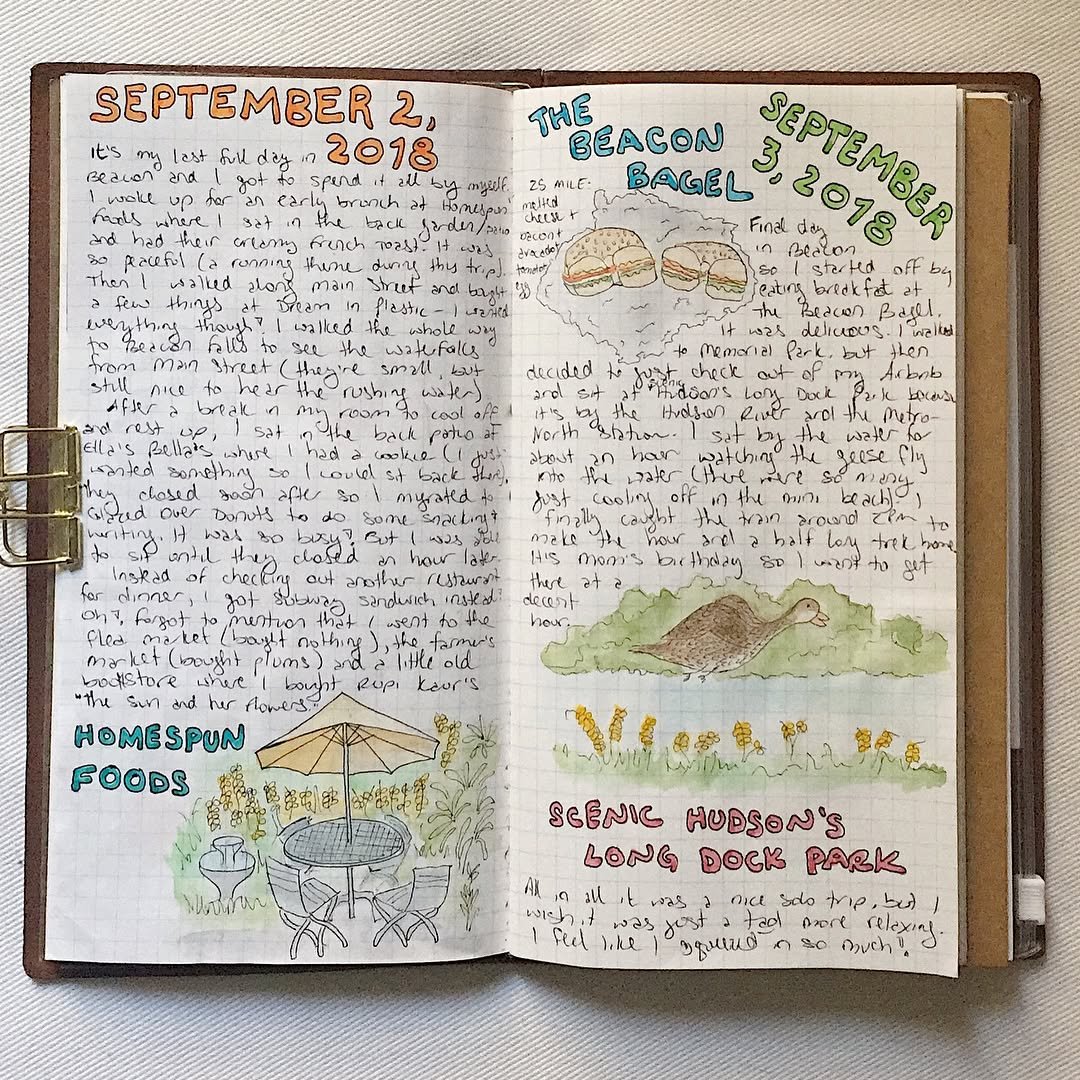 SEPTEMBER 2,
2018
It's my last full day in
Beacon and I got to spend it all by myself.
I woke up for an early brunch at Homespun
Foods where I sat in the back garden/patio
and had their creamy French Toast. It was
so peaceful (a running theme during this trip).
Then I walked along Main Street and bought
a few things at Dream in Plastic - I wanted
everything though! I walked the whole way
to Beacon Falls to see the waterfalls
from Main Street (they're small but
still nice to hear the rushing water)
After a break in my room to cool off
and rest up, I sat in the back patio at
Ella's Bella's where I had a cookie (I just
wanted something so I could sit back there).
They closed soon after so I migrated to
Glazed Over Donuts to do some snacking &
writing. It was so busy! But I was able
to sit until they closed an hour later.
Instead of checking out another restaurant
for dinner, I got Subway sandwich instead!
Oh!, forgot to mention that I went to the
flea market (bought nothing), the farmer's
market (bought plums) and a little old
bookstore where I bought Rupi Kaur's
"The Sun and her Flowers."
HOMESPUN
FOODS
THE
BEACON
BAGEL
SEPTEMBER
3, 2018
25 MILE:
melted
cheese +
bacon +
avocado +
tomato +
egg
Final day
in Beacon
so I started off by
eating breakfast at
The Beacon Bagel.
It was delicious. I walked
to Memorial Park, but then
decided to just check out of my Airbnb
and sit at scenic Hudson's Long Dock Park because
it's by the Hudson River and the Metro-
North station. I sat by the water for
about an hour watching the geese fly
into the water (there were so many
just cooling off in the mini beach). I
finally caught the train around 2PM to
make the hour and a half long trek home.
It's mom's birthday so I want to get
there at a
decent
hour.
SCENIC HUDSON'S
LONG DOCK PARK
All in all it was a nice solo trip, but I
wish it was just a tad more relaxing.
I feel like I squeezed in so much!